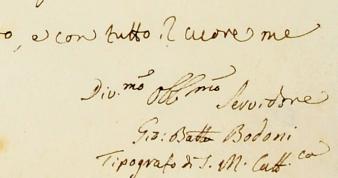 o, e con tutto il cuore me
Div.mo Obb.mo Servidore
Gio: Batta Bodoni
Tipografo di S. M. Catt.ca